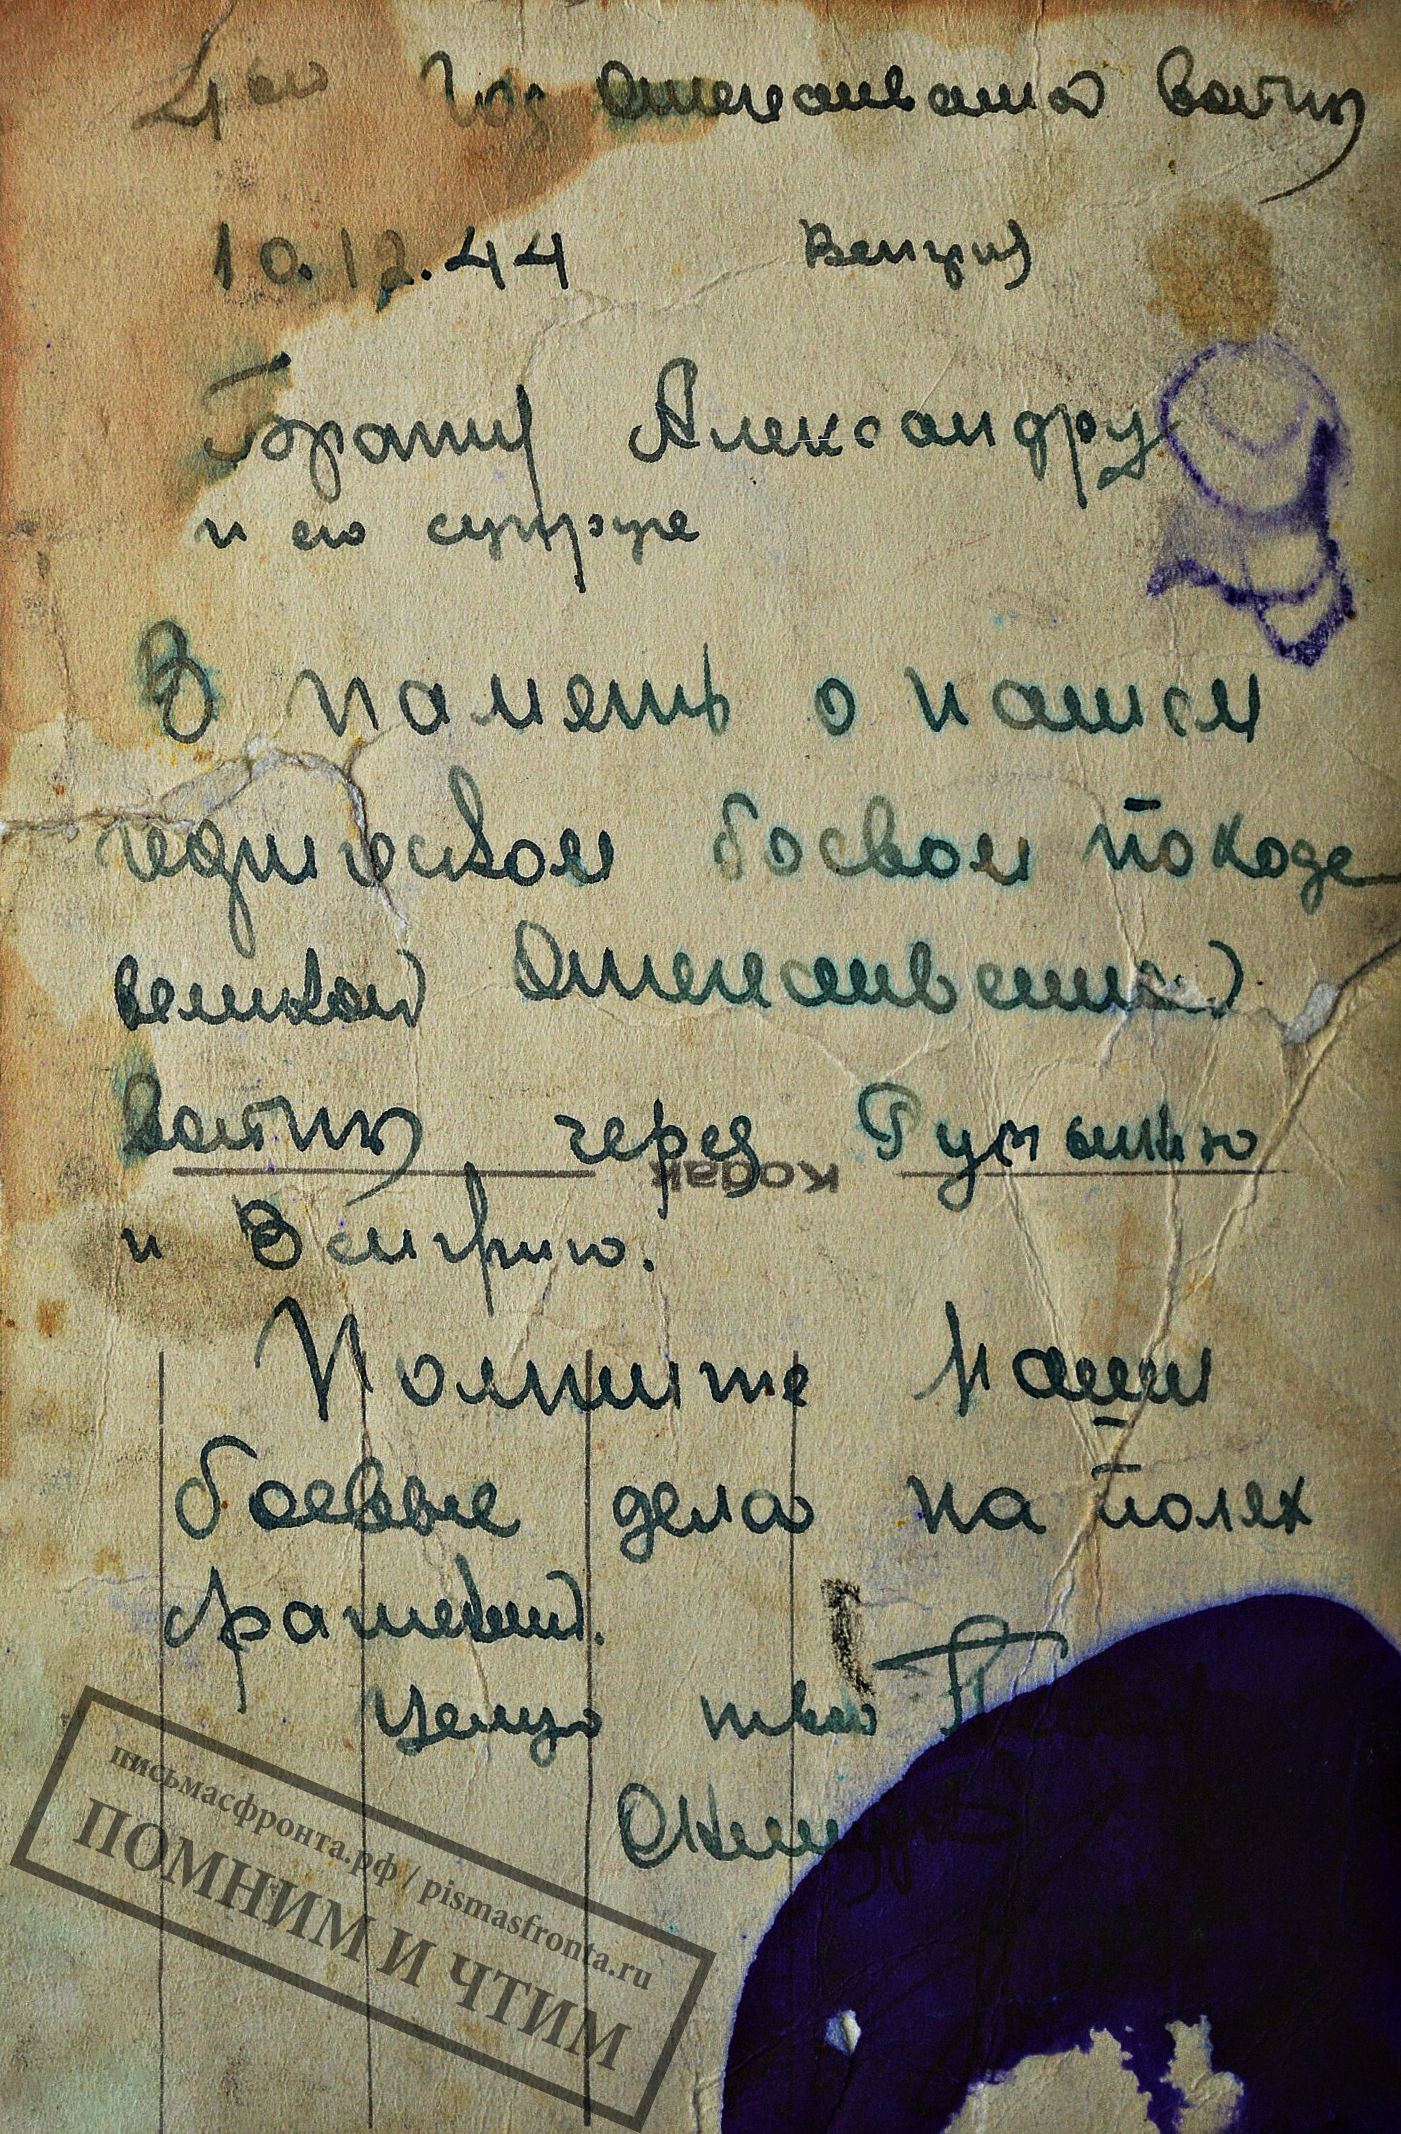 4ый Год Отечественной войны
10.12.44 Венгрия
Брату Александру
и его супруге
В паметь о нашем
героическом боевом походе
великой Отечественной
войны через Румынию
Kodak
и Венгрию.
Помните наши
боевые дела на полях
сражений.
Целую твой
письмасфронта.рф / pismasfronta.ru
ПОМНИМ И ЧТИМ